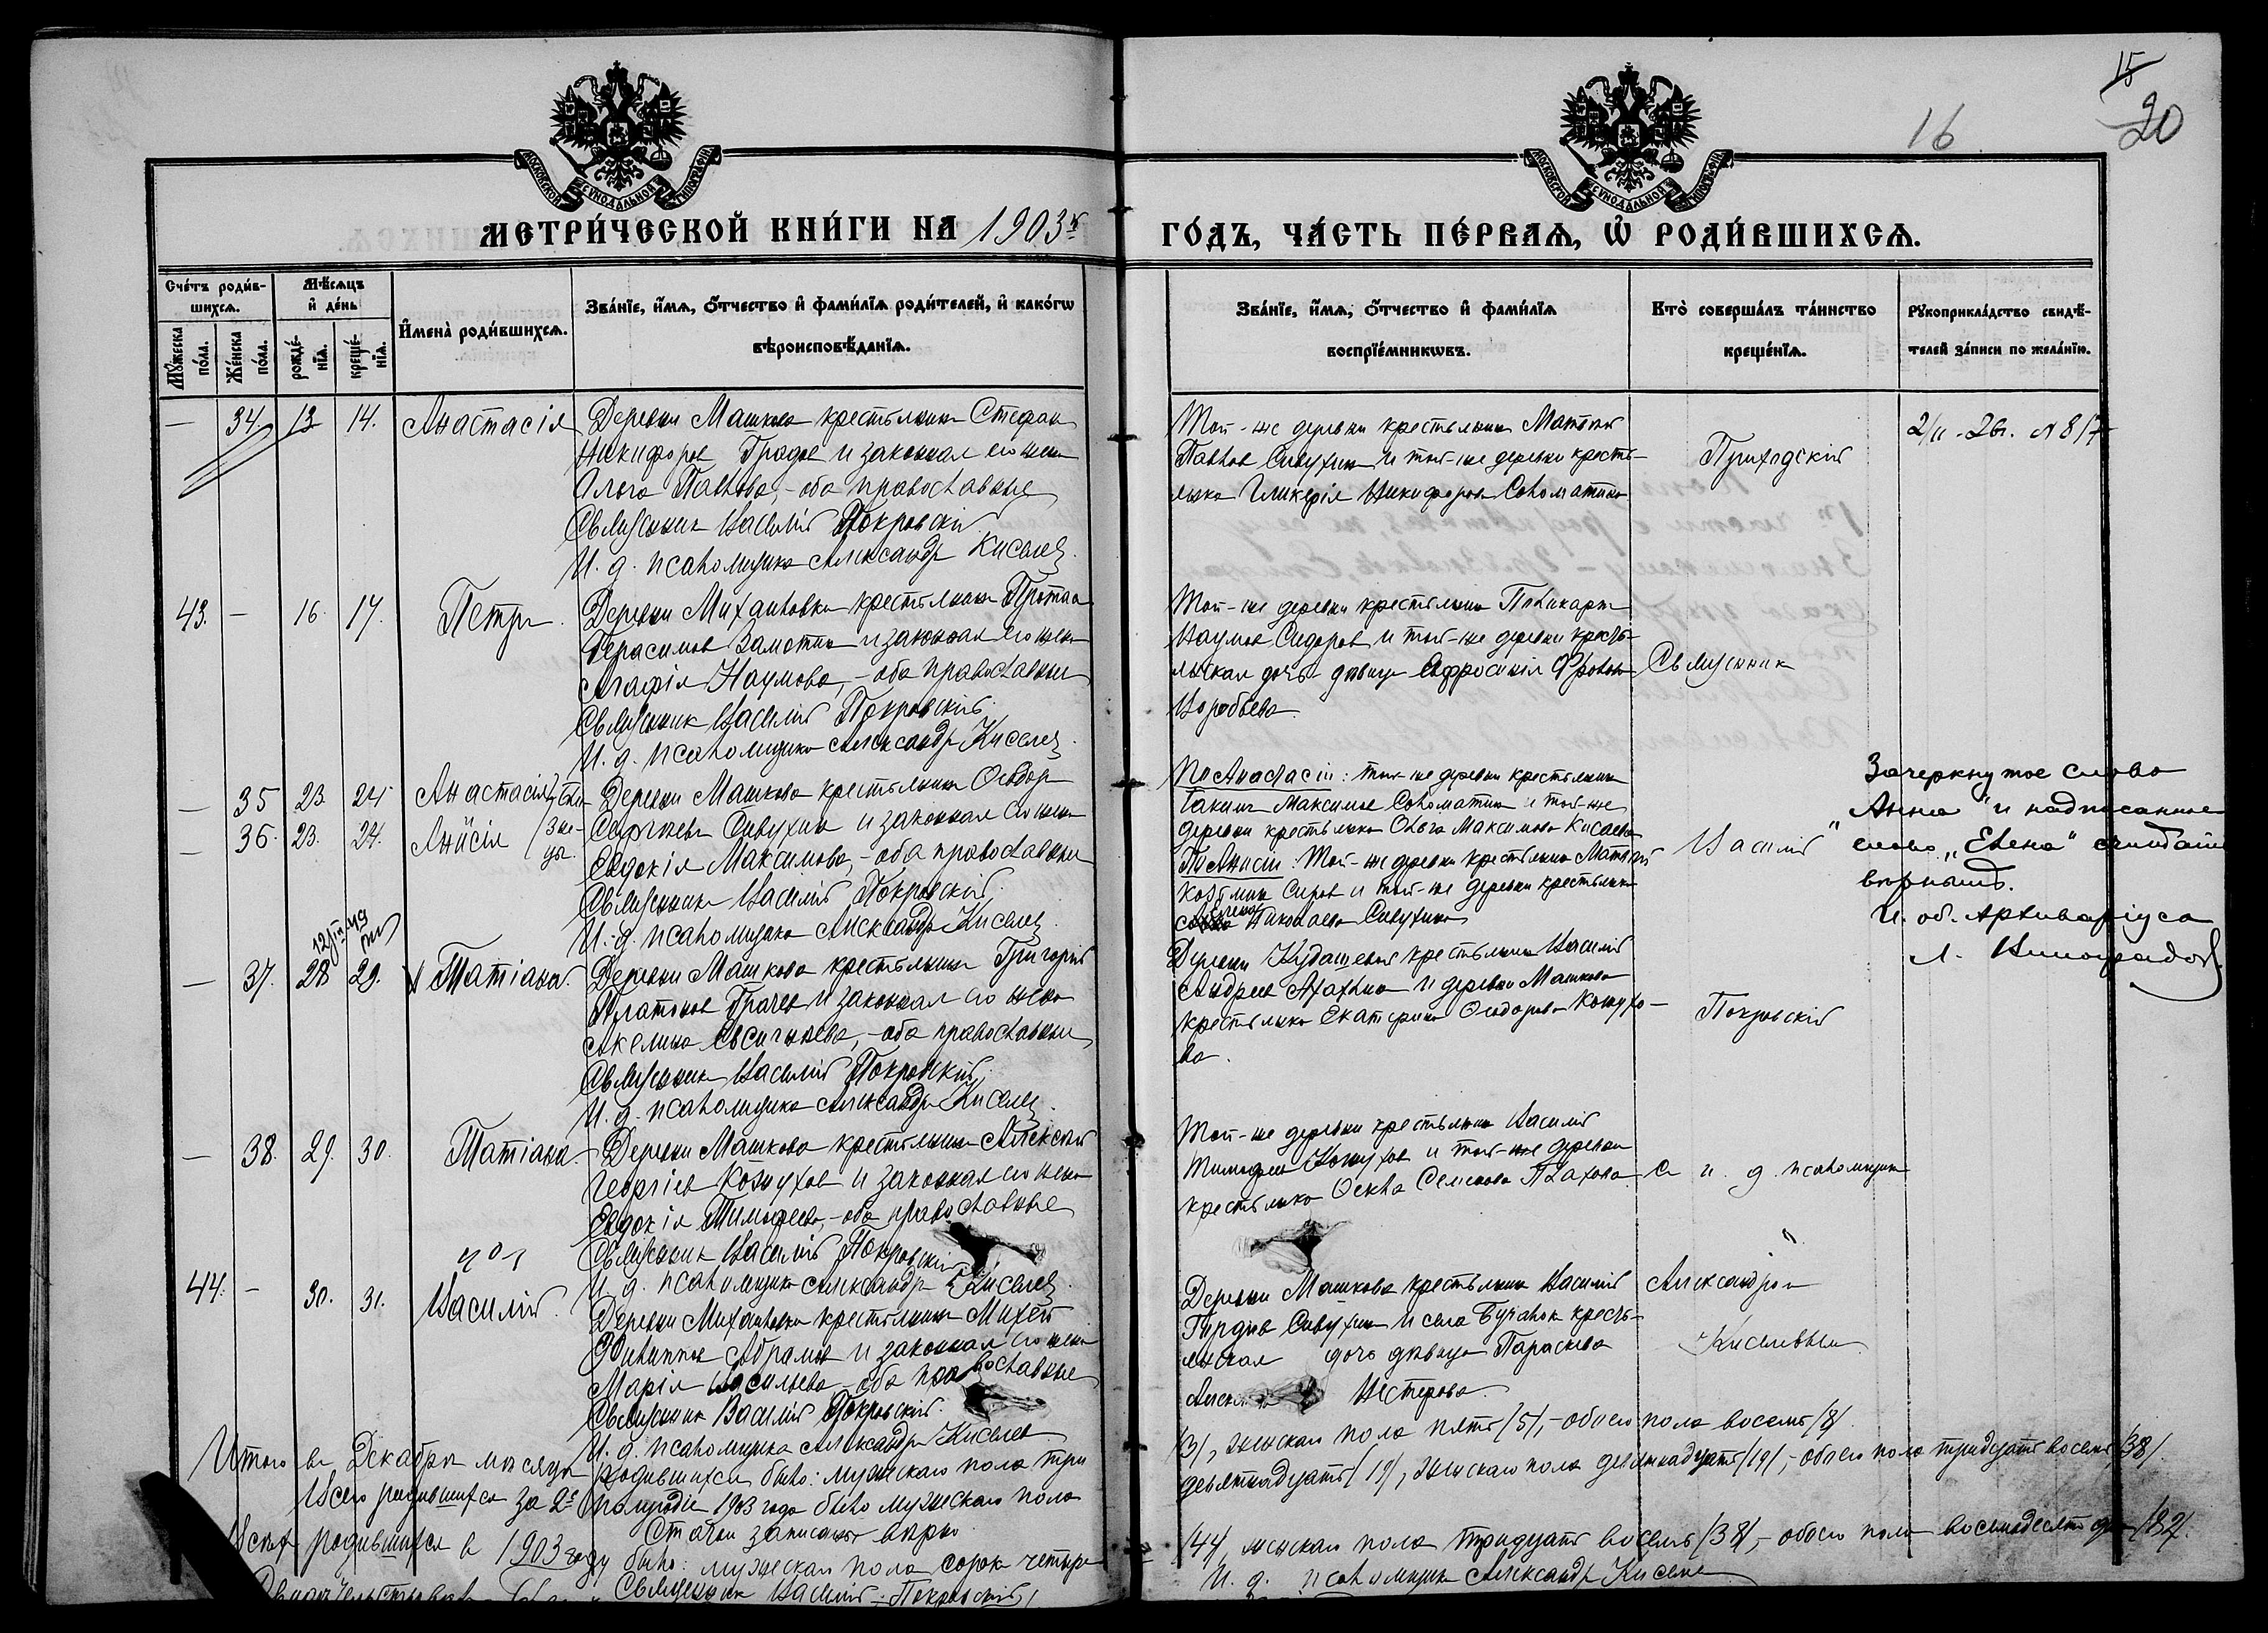 15
16
20
МОСКОВСКОЙ СѴНОДАЛЬНОЙ ТИПОГРАФІИ
МОСКОВСКОЙ СѴНОДАЛЬНОЙ ТИПОГРАФІИ
МЕТРИ́ЧЕСКОЙ КНИ́ГИ НА 1903й
ГО́ДЪ, ЧА́СТЬ ПЕ́РВАѦ, Ѡ҆ РОДИ́ВШИХСѦ.
Сче́тъ роди́в-
шихсѧ.
Мꙋ́жеска по́ла.
Же́нска по́ла.
Мѣ́сѧцъ
и҆ де́нь
рожде́-
нїѧ.
креще́-
нїѧ.
И҆мена̀ роди́вшихсѧ.
Зва́нїе, и҆́мѧ, ѻ҆́тчество и҆ фами́лїѧ роди́телей, и҆ како́гѡ
вѣроисповѣ́данїѧ.
Зва́нїе, и҆́мѧ, ѻ҆́тчество и҆ фами́лїѧ
воспрїе́мникѡвъ.
Кто̀ соверша́лъ та́инство
креще́нїѧ.
Рꙋкоприкла́дство свидѣ́-
телей за́писи по жела́нїю.
— 34. 13 14. Анастасія
Деревни Машкова крестьянинъ Стефанъ
Никифоровъ Грачевъ и законная его жена
Ольга Павлова, - оба православные
Священникъ Василій Покровскій
И. д. псаломщика Александръ Киселевъ
Той-же деревни крестьянинъ Матвей
Павловъ Сивухинъ и той-же деревни кресть-
янка Гликерія Никифорова Соломатина
Приходскій
43. — 16. 17. Петръ.
Деревни Михайловки крестьянинъ
Герасимовъ Замотинъ и законная его жена
Агафія Наумова, - оба православные
Священникъ Василій Покровскій
И. д. псаломщика Александръ Киселевъ
Той-же деревни крестьянинъ Поликарпъ
Наумовъ Сидоровъ и той-же деревни кресть-
янская дочь девица Евфросинія Фролова
Воробьева.
Священникъ
— 35 23. 24 Анастасія
— 36. 23. 24. Анисія
близ-
не-
цы.
Деревни Машкова крестьянинъ Ѳеодоръ
Сергеевъ Сивухинъ и законная его жена
Евдокія Максимова, - оба православные
Священникъ Василій Покровскій
И. д. псаломщика Александръ Киселевъ
По Анастасіи: той-же деревни крестьянинъ
Іакимъ Максимовъ Соломатинъ и той-же
деревни крестьянка Ольга Максимова Кисаева
По Анисіи: Той-же деревни крестьянинъ Матвей
Козьминъ и той-же деревни крестьянка
Елена Николаева Сивухина
Василій
Зачеркнутое слово
„Анна" и надписанное
слово „Елена" считать
вѣрнымъ.
И. об. Архиваріуса
Л. Виноградов
12 января
— 37. 28 29. Татіана.
Деревни Машкова крестьянинъ Григорій
Платоновъ Грачевъ и законная его жена
Акелина Евсигнеева, - оба православные
Священникъ Василій Покровскій
И. д. псаломщика Александръ Киселевъ
Деревни Кудашевой крестьянинъ Василій
Андреевъ и деревни Машкова
крестьянка Екатерина Ѳеодорова Кожухо-
ва.
Покровскій
— 38. 29. 30. Татіана.
Деревни Машкова крестьянинъ Алексей
Георгіевъ Кожуховъ и законная его жена
Евдокія Тимофеева, - оба православные
Священникъ Василій Покровскій
И. д. псаломщика Александръ Киселевъ
Той-же деревни крестьянинъ Василій
Тимофеевъ Кожуховъ и той-же деревни
крестьянка Ѳекла Семенова
съ и. д. псаломщика
44. — 30. 31. Василій
Деревни Михайловки крестьянинъ Михей
Филипповъ Абрамовъ и законная его жена
Марія Васильева - оба православные
Священникъ Василій Покровскій.
И. д. псаломщика Александръ Киселевъ
Деревни Машкова крестьянинъ Василій
Гордеевъ Сивухинъ и села Бучалокъ кресть-
янская дочь девица Параскева
Нестерова.
Александромъ
Киселевымъ
Итого въ Декабрѣ мѣсяцѣ родившихся было: мужескаго пола три
/3/, женскаго пола пять /5/, - обоего пола восемь /8/.
Всего родившихся за 2е полугодіе 1903 года было мужескаго пола
девятнадцать /19/, женскаго пола девятнадцать /19/, - обоего пола тридцать восемь /38/.
Статьи записаны верно
Всехъ родившихся въ 1903 году было: мужескаго пола сорокъ четыре
/44/ женскаго пола тридцать восемь /38/, - обоего пола восемьдесятъ два /82/.
Священникъ Василій Покровскій
И. д. псаломщика Александръ Киселевъ